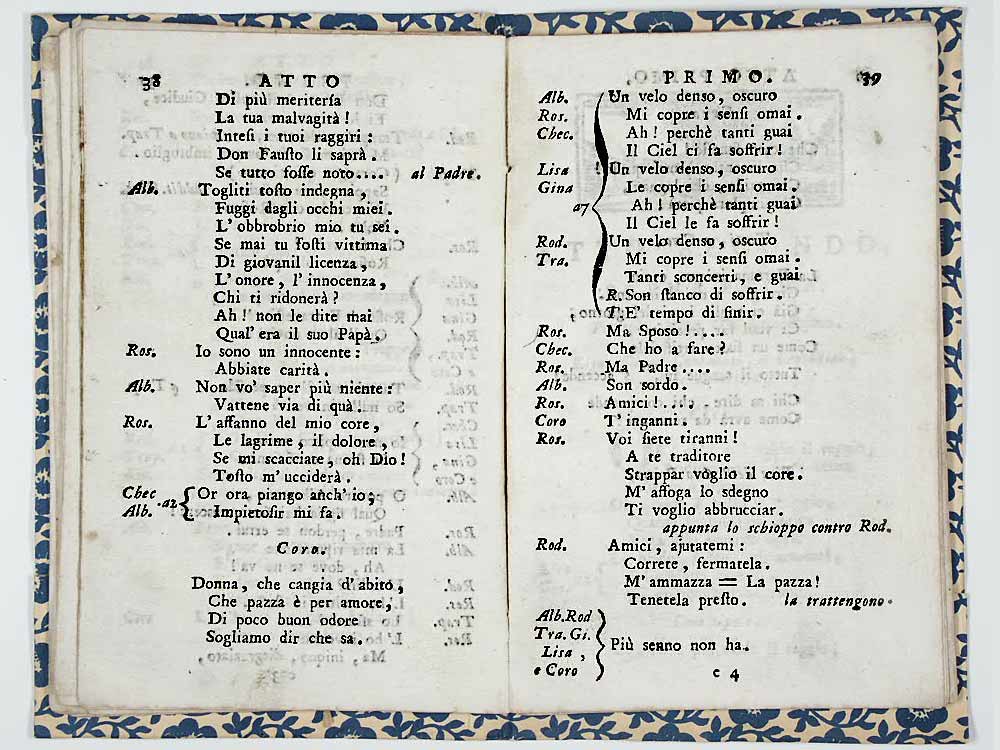 38 ATTO
Di più meritería
La tua malvagità !
Intesi i tuoi raggiri :
Don Fausto li saprà .
Se tutto fosse noto.... al Padre.
Alb. Togliti tosto indegna ,
Fuggi dagli occhi miei .
L' obbrobrio mio tu sei .
Se mai tu fosti vittima
Di giovanil licenza ,
L' onore , l' innocenza ,
Chi ti ridonerà ?
Ah ! non le dite mai
Qual' era il suo Papà .
Ros. Io sono un innocente :
Abbiate carità .
Alb. Non vo' saper più niente :
Vattene via di quà .
Ros. L' affanno del mio core ,
Le lagrime , il dolore ,
Se mi scacciate , oh Dio !
Tosto m' ucciderà .
Chec Or ora piango anch' io ;
a2
Alb. Impietosir mi fa .
Coro.
Donna , che cangia d' abito ,
Che pazza è per amore ,
Di poco buon odore
Sogliamo dir che sa .
PRIMO. 39
Alb. Un velo denso , oscuro
Ros. Mi copre i sensi omai .
Chec. Ah ! perchè tanti guai
Il Ciel ci fa soffrir !
Lisa Un velo denso , oscuro
Gina Le copre i sensi omai .
a7 Ah ! perchè tanti guai
Il Ciel le fa soffrir !
Rod. Un velo denso , oscuro
Tra. Mi copre i sensi omai .
Tanti sconcerti , e guai
R. Son stanco di soffrir .
T. E' tempo di finir .
Ros. Ma Sposo !....
Chec. Che ho a fare ?
Ros. Ma Padre ....
Alb. Son sordo .
Ros. Amici !....
Coro T' inganni .
Ros. Voi siete tiranni !
A te traditore
Strappar voglio il core .
M' affoga lo sdegno
Ti voglio abbrucciar .
appunta lo schioppo contro Rod.
Rod. Amici , ajutatemi :
Correte , fermatela .
M' ammazza = La pazza !
Tenetela presto . la trattengono .
Alb. Rod
Tra. Gi.
Lisa , Più senno non ha .
e Coro
c 4